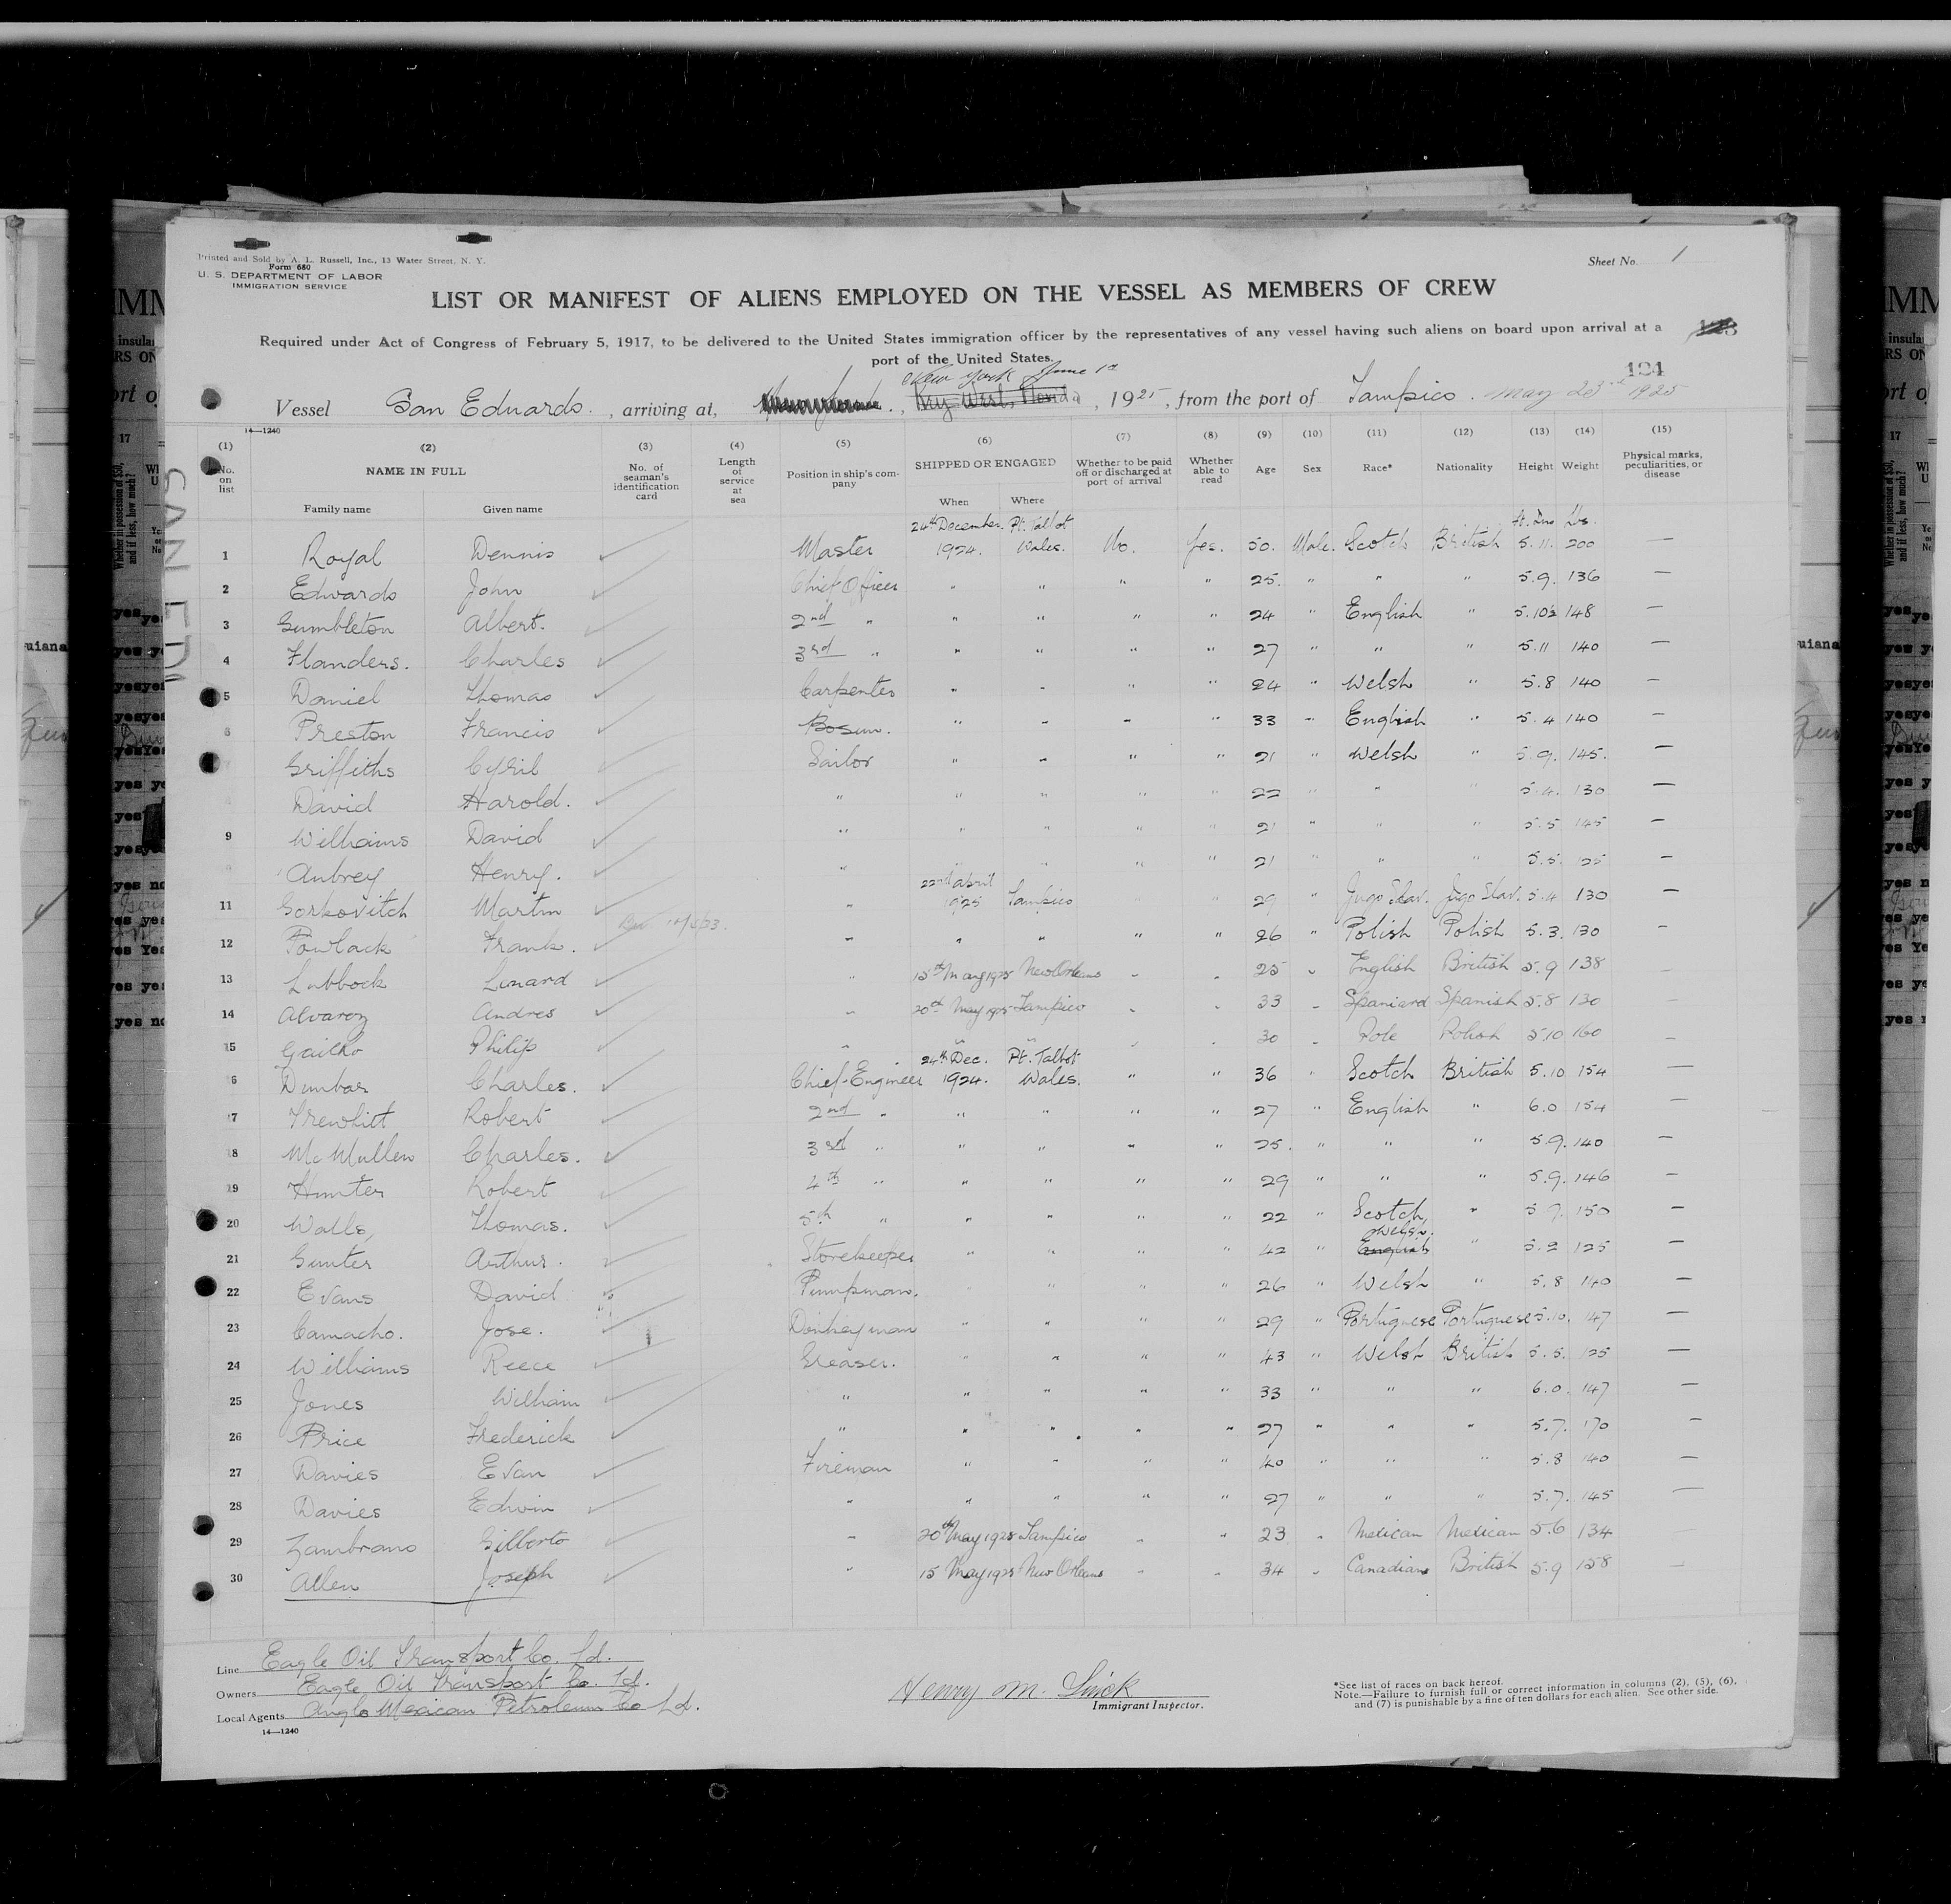 Printed and Sold by A. L. Russell, Inc., 13 Water Street, N. Y.
Form 680
U. S. DEPARTMENT OF LABOR
IMMIGRATION SERVICE
Sheet No. 1
LIST OR MANIFEST OF ALIENS EMPLOYED ON THE VESSEL AS MEMBERS OF CREW
Required under Act of Congress of February 5, 1917, to be delivered to the United States immigration officer by the representatives of any vessel having such aliens on board upon arrival at a
port of the United States.
124
New York June 1st
Vessel San Eduardo. , arriving at, Key West, Florida, 1925, from the port of Tampico. May 23rd 1925
14—1240
(1) (2) (3) (4) (5) (6) (7) (8) (9) (10) (11) (12) (13) (14) (15)
No. on list NAME IN FULL No. of seaman's identification card Length of service at sea Position in ship's company SHIPPED OR ENGAGED Whether to be paid off or discharged at port of arrival Whether able to read Age Sex Race* Nationality Height Weight Physical marks, peculiarities, or disease
Family name Given name When Where
24th December. Pt. Talbot ft. Ins lbs.
1 Royal Dennis Master 1924. Wales. No. Yes. 50. Male. Scotch British 5.11. 200 —
2 Edwards John Chief Officer " " " " 25. " " " 5.9. 136 —
3 Gumbleton Albert. 2nd " " " " " 24 " English " 5.10½ 148 —
4 Flanders. Charles 3rd " " " " " 27 " " " 5.11 140 —
5 Daniel Thomas Carpenter " " " " 24 " Welsh " 5.8 140 —
6 Preston Francis Bosun. " " " " 33 " English " 5.4 140 —
Griffiths Cyril Sailor " " " " 21 " Welsh " 5.9. 145. —
David Harold. " " " " " 22 " " " 5.4. 130 —
9 Williams David " " " " " 21 " " " 5.5 145 —
Aubrey Henry. " " " " " 21 " " " 5.5. 125 —
22nd April
11 Gorkovitch Martin " 1925 Tampico " " 29 " Jugo Slav. Jugo Slav. 5.4 130 —
12 Powlack Frank. " " " " " 26 " Polish Polish 5.3. 130 —
13 Lubbock Linard " 15th May 1925 New Orleans " " 25 " English British 5.9 138 —
14 Alvaroz Andres " 20th May 1925 Tampico " " 33 " Spaniard Spanish 5.8 130 —
15 Gailko Philip " " " " " 30 " Pole Polish 5.10 160 —
24th Dec. Pt. Talbot
16 Dunbar Charles. Chief Engineer 1924. Wales. " " 36 " Scotch British 5.10 154 —
17 Trewhitt Robert 2nd " " " " " 27 " English " 6.0 154 —
18 McMullen Charles. 3rd " " " " " 25. " " " 5.9. 140 —
19 Hunter Robert 4th " " " " " 29 " " " 5.9. 146 —
20 Walls, Thomas. 5th " " " " " 22 " Scotch " 5 9. 150 —
Welsh.
21 Gunter Arthur. Storekeeper " " " " 42 " English " 5.2 125 —
22 Evans David Pumpman. " " " 26 " Welsh " 5.8 140 —
23 Camacho. Jose. Donkeyman " " " " 29 " Portuguese Portuguese 5.10. 147 —
24 Williams Reece Greaser. " " " " 43 " Welsh British 5.5. 125 —
25 Jones William " " " " " 33 " " " 6.0. 147 —
26 Price Frederick " " " " " 27 " " " 5.7. 170 —
27 Davies Evan Fireman " " " " 40 " " " 5.8 140 —
28 Davies Edwin " " " " " 27 " " " 5.7. 145 —
29 Zambrano Gilberto " 20th May 1925 Tampico " " 23 " Mexican Mexican 5.6 134 —
30 Allen Joseph " 15 May 1925 New Orleans " " 34 " Canadian British 5.9 158 —
Line Eagle Oil Transport Co. Ld.
Owners Eagle Oil Transport Co. Ld.
Local Agents Anglo Mexican Petroleum Co Ld.
14—1240
Immigrant Inspector.
*See list of races on back hereof.
Note.—Failure to furnish full or correct information in columns (2), (5), (6),
and (7) is punishable by a fine of ten dollars for each alien. See other side.